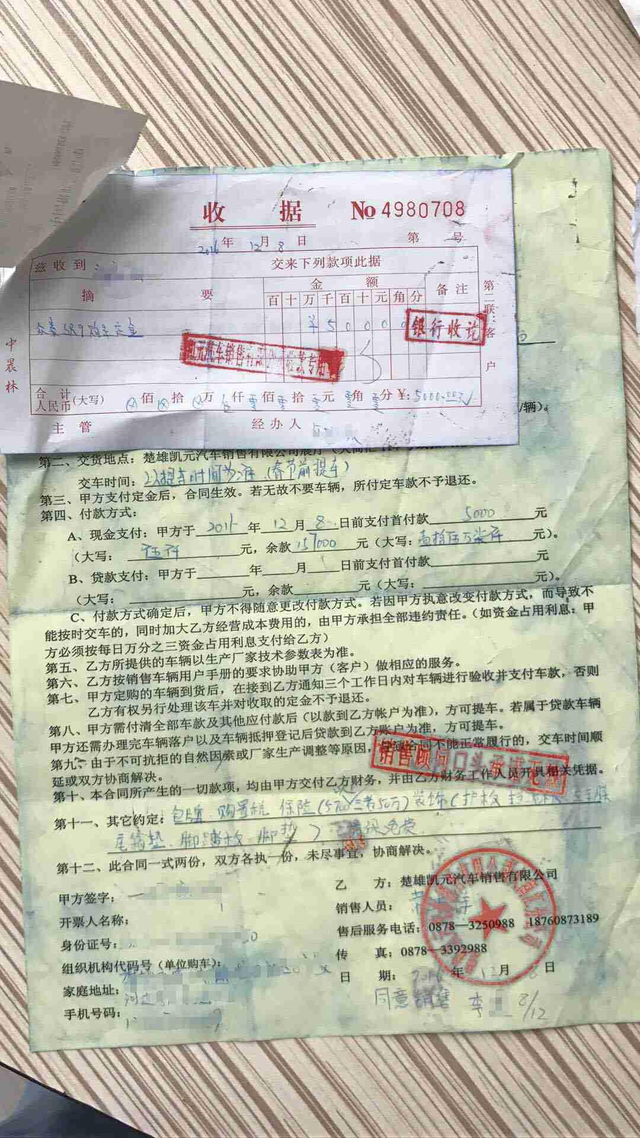 收 据 No 4980708
2016年12月8日 第 号
兹收到: 交来下列款项此据
摘 要 金 额 备 注
百十万千百十元角分
¥50000
银行收讫
第二联:客户
中晨林
合 计
人民币(大写) 佰 拾 万 仟 佰 拾 元 角 分 ¥:5000.00元
主 管 经 办 人
/辆)。
第二、交货地点:楚雄凯元汽车销售有限公司展厅
交车时间: 以提车时间为准(春节前提车)
第三、甲方支付定金后,合同生效。若无故不要车辆,所付定车款不予退还。
第四、付款方式:
A、现金支付:甲方于 2016 年 12 月 8 日前支付首付款 5000 元
(大写: 伍仟 元,余款 157000 元(大写: 元)。
B、贷款支付:甲方于 年 月 日前支付首付款 元
(大写: 元,余款 元(大写: 元)。
C、付款方式确定后,甲方不得随意更改付款方式。若因甲方执意改变付款方式,而导致不
能按时交车的,同时加大乙方经营成本费用的,由甲方承担全部违约责任。(如资金占用利息:甲
方必须按每日万分之三资金占用利息支付给乙方)
第五、乙方所提供的车辆以生产厂家技术参数表为准。
第六、乙方按销售车辆用户手册的要求协助甲方(客户)做相应的服务。
第七、甲方定购的车辆到货后,在接到乙方通知三个工作日内对车辆进行验收并支付车款,否则
乙方有权另行处理该车并对收取的定金不予退还。
第八、甲方需付清全部车款及其他应付款后(以款到乙方帐户为准),方可提车。若属于贷款车辆
甲方还需办理完车辆落户以及车辆抵押登记后贷款到乙方账户为准,方可提车。
第九、由于不可抗拒的自然因素或厂家生产调整等原因, 合同不能正常履行的,交车时间顺
延或双方协商解决。
销售顾问口头承诺无效
第十、本合同所产生的一切款项,均由甲方交付乙方财务,并由乙方财务工作人员开具相关凭据。
第十一、其它约定: 包牌 购置税 保险 装饰(护板
尾箱垫 脚踏板 脚垫)
第十二、此合同一式两份,双方各执一份,未尽事宜,协商解决。
甲方签字: 乙 方:楚雄凯元汽车销售有限公司
开票人名称: 销售人员:
身份证号: 售后服务电话:0878—3250988 18760873189
组织机构代码号(单位购车): 传 真:0878—3392988
家庭地址: 日 期: 2016 年 12 月 8 日
手机号码: 同意销售 李 8/12